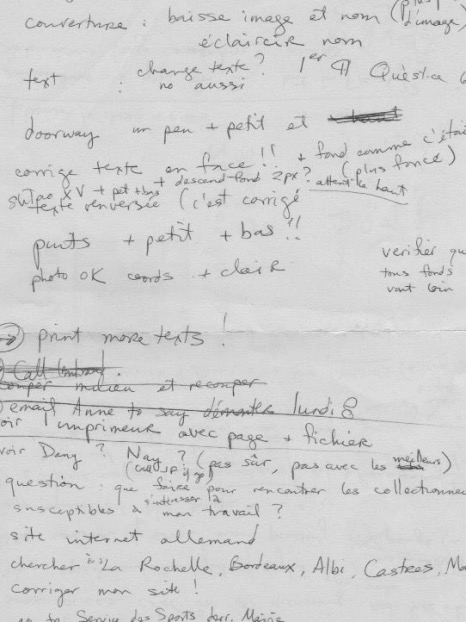 plus
couverture : baisse image et nom (l'image)
éclaircir nom
text : change texte ? 1er ¶ Qu'est-ce
no aussi
doorway un peu + petit et
corrige texte en face !! + fond comme c'étai
+ descend fond 2px ? (plus foncé)
XV + pet + bas attent. le haut
texte renversée (c'est corrigé
punts + petit + bas !!
photo OK coords + clair
verifier qu
tous fonds
vont loin
→ print more texts !
Call
couper milieu et recouper
email Anne to say lundi 8
voir imprimeur avec page + fichier
voir Dany ? Nay ? (pas sûr, pas avec les meilleurs)
(call, if go)
question : que faire pour rencontrer les collectionne
s'intéresser à
susceptibles à mon travail ?
site internet allemand
chercher à La Rochelle, Bordeaux, Albi, Castres, Mo
corriger mon site !
Service des Sports derr. Mairie